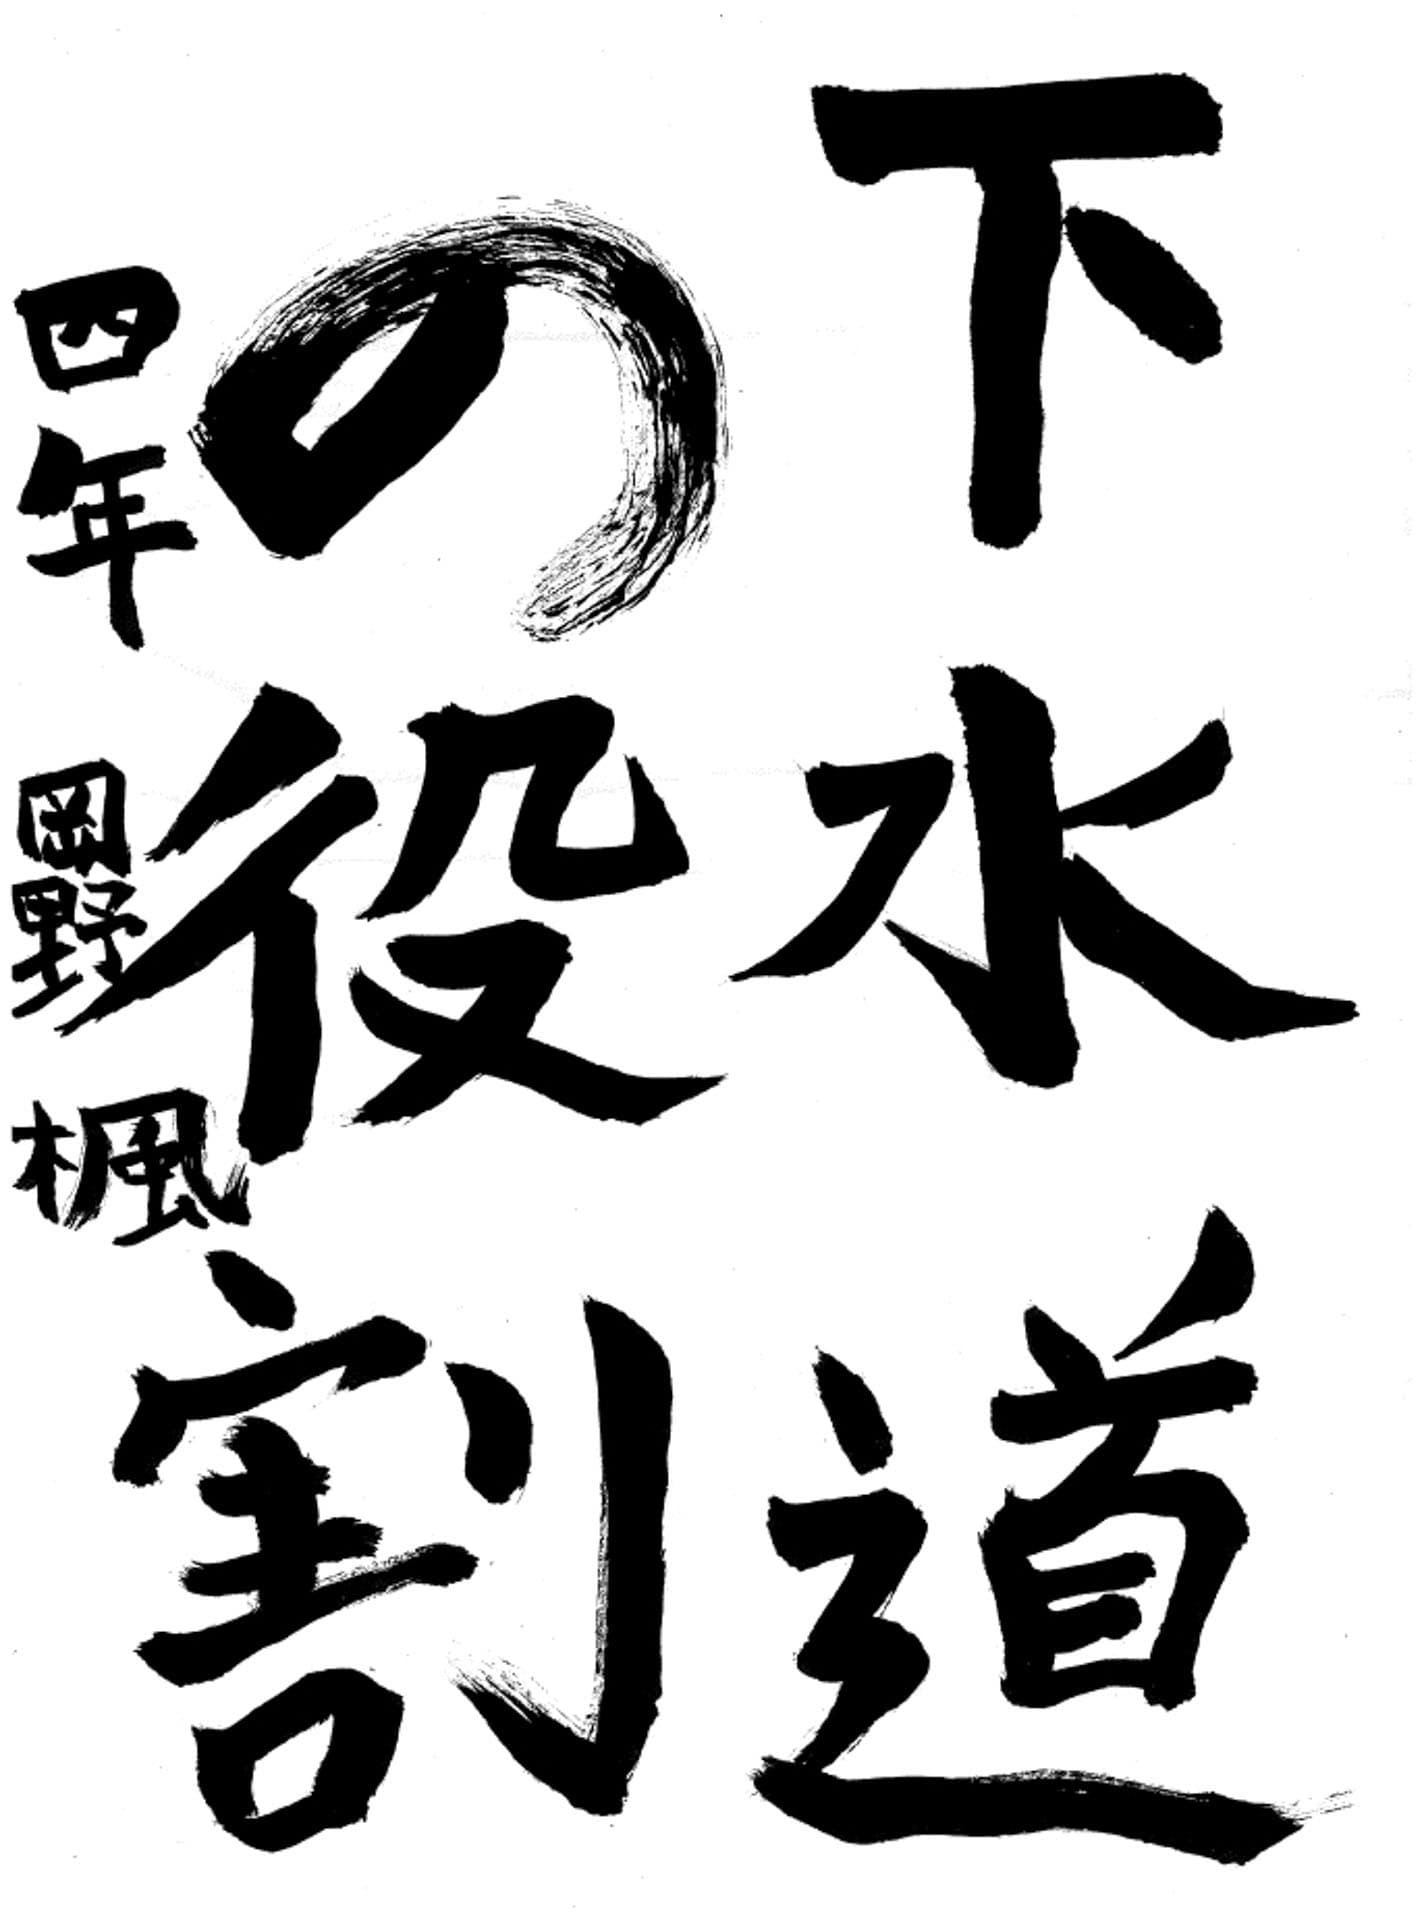 下水道
の役割
四年 岡野 楓